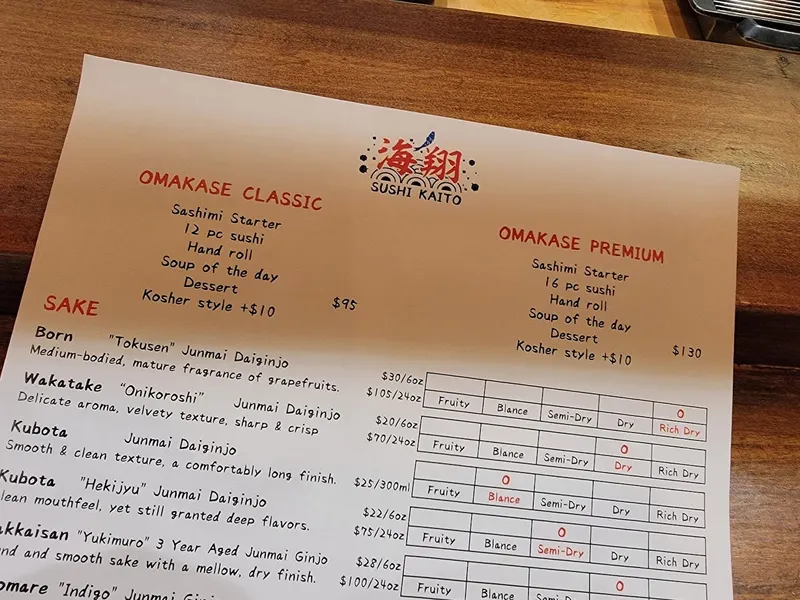 海翔
SUSHI KAITO
OMAKASE CLASSIC
Sashimi Starter
12 pc sushi
Hand roll
Soup of the day
Dessert
Kosher style +$10
$95
OMAKASE PREMIUM
Sashimi Starter
16 pc sushi
Hand roll
Soup of the day
Dessert
Kosher style +$10
$130
SAKE
Born "Tokusen" Junmai Daiginjo
Medium-bodied, mature fragrance of grapefruits.
$30/6oz
$105/24oz
O
Fruity Blance Semi-Dry Dry Rich Dry
Wakatake "Onikoroshi" Junmai Daiginjo
Delicate aroma, velvety texture, sharp & crisp
$20/6oz
$70/24oz
O
Fruity Blance Semi-Dry Dry Rich Dry
Kubota Junmai Daiginjo
Smooth & clean texture, a comfortably long finish.
$25/300ml
O
Fruity Blance Semi-Dry Dry Rich Dry
Kubota "Hekijyu" Junmai Daiginjo
lean mouthfeel, yet still granted deep flavors.
$22/6oz
$75/24oz
O
Fruity Blance Semi-Dry Dry Rich Dry
akkaisan "Yukimuro" 3 Year Aged Junmai Ginjo
nd and smooth sake with a mellow, dry finish.
$28/6oz
$100/24oz
O
Fruity Blance Semi-Dry Dry Rich Dry
omare "Indigo" Junmai Ginj